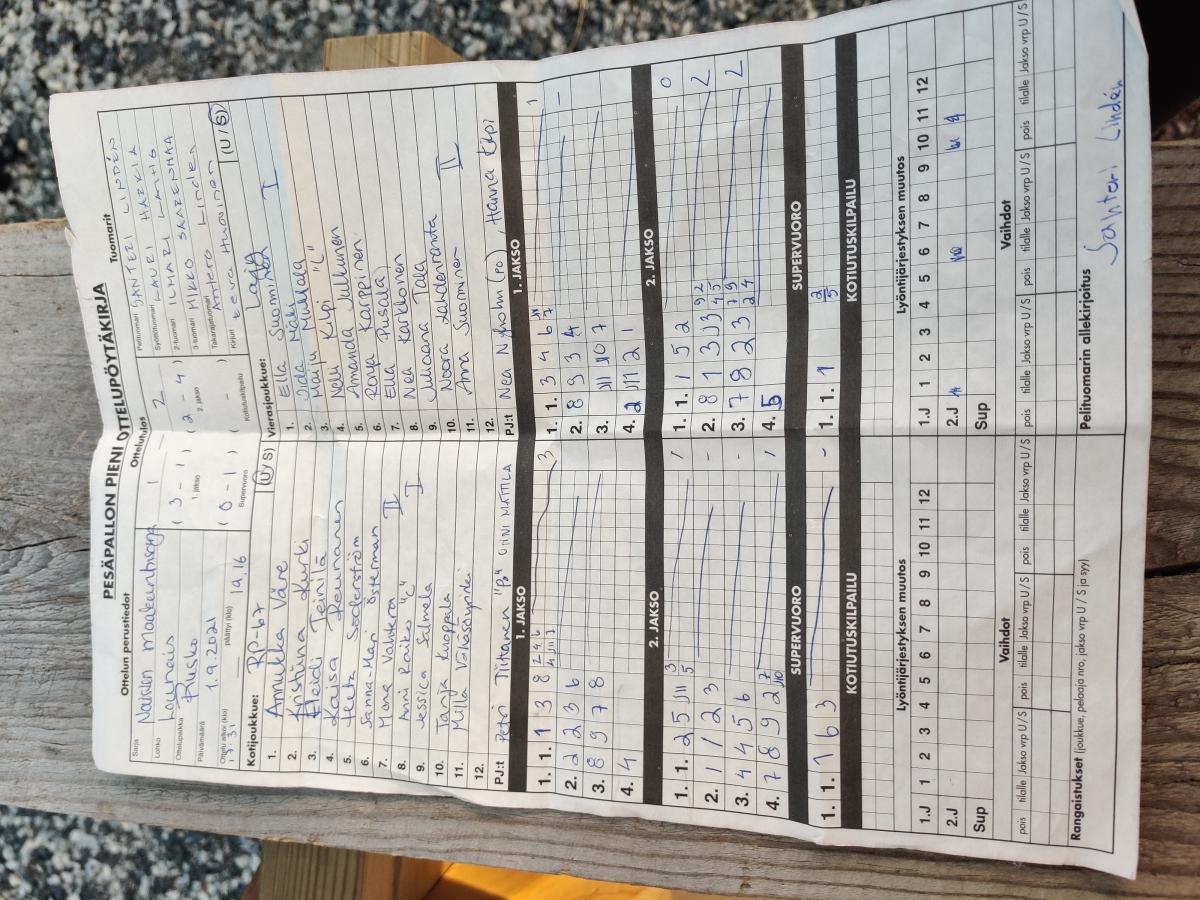 PESÄPALLON PIENI OTTELUPÖYTÄKIRJA
Ottelun perustiedot
Ottelutulos
Tuomarit
Sarja
Naisten maakuntasarja
Lohko
Lounais
Ottelupaikka
Rusko
Päivämäärä
1.9.2021
Ottelu alkoi (klo)
17:31
päättyi (klo)
19.16
1 – 2
( 3 – 1 ) ( 2 – 4 )
1. jakso 2. jakso
( 0 – 1 ) ( – )
Supervuoro Kotiutuskilpailu
Pelituomari SANTERI LINDÉN
Syöttötuomari LAURI
2-tuomari ILMARI
3-tuomari MIKKO
Takarajatuomari Antero Lindén
Kirjuri Eeva Huovinen
Kotijoukkue: RP-67 (U/S)
1. Annukka Väre
2. Kristiina Kurki
3. Heidi Teinilä
4. Laisa Reunanen
5. Heta Soderström
6. Sanna-Mari Österman
7. Mona Valtera
8. Anni Raike "C" II
9. Jessica Salmela I
10. Tanja Kuoppala
11. Milla
12.
PJ:t Petri Tiittanen "PJ" OINI MATTILA
Vierasjoukkue: (U/S)
1. Ella Suominen I
2. Iida Mäki
3. Maiju
4. Nelli Kiipi "C"
5. Amanda Julkunen
6. Ronja Karppinen
7. Ella Pusala
8. Nea Karkkonen
9. Juliaana Tala
10. Noora Lahdenranta
11. Anna Suominen II
12.
PJ:t Nea Nyholm (PJ) Hanna Kiipi
1. JAKSO
1. JAKSO
1. 1. 1 3 8 3
2. 2 2 3 6
3. 8 9 7 8
4. 4
1. 1. 3 4 6 1
2. 8 9 3 4 –
3. J11 J10 7
4. 2 J11 2 1
2. JAKSO
2. JAKSO
1. 1. 2 5 J11 1
2. 1 1 2 3 -
3. 4 4 5 6 -
4. 7 8 9 2 1
1. 1. 1 5 2 0
2. 8 1 3 2
3. 7 8 2 3 2
4. 5
SUPERVUORO
SUPERVUORO
1. 1. 1 6 3 -
1. 1. 1
KOTIUTUSKILPAILU
KOTIUTUSKILPAILU
Lyöntijärjestyksen muutos
Lyöntijärjestyksen muutos
1.J 1 2 3 4 5 6 7 8 9 10 11 12
1.J 1 2 3 4 5 6 7 8 9 10 11 12
2.J
2.J
Sup
Sup
Vaihdot
Vaihdot
pois tilalle Jakso vrp U/S pois tilalle Jakso vrp U/S pois tilalle Jakso vrp U/S
pois tilalle Jakso vrp U/S pois tilalle Jakso vrp U/S pois tilalle Jakso vrp U/S
Rangaistukset (joukkue, pelaaja nro, jakso vrp U / S ja syy)
Pelituomarin allekirjoitus
Santeri Lindén